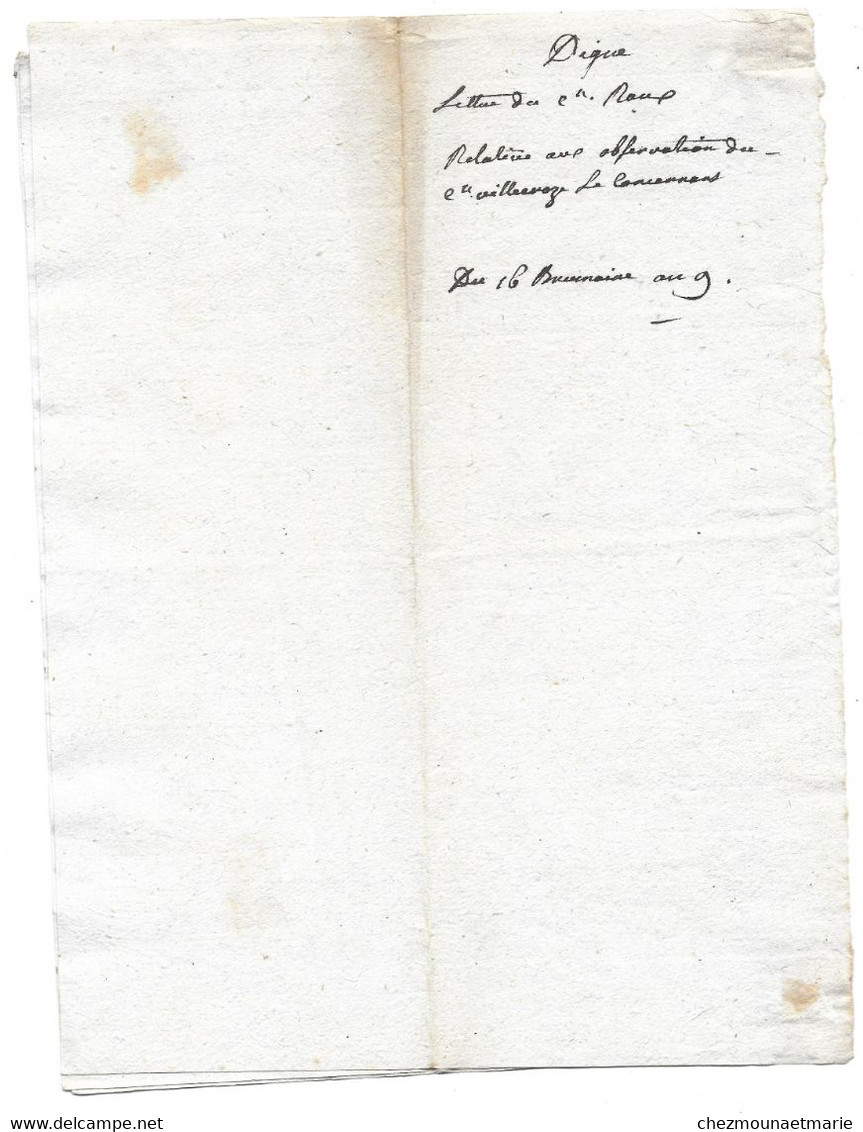 Digue
Lettre du Cen. Roux
Relative aux observation du
Cen. villecroze Le Concernant
Du 16 Brumaire an 9.
chezmounaetmarie